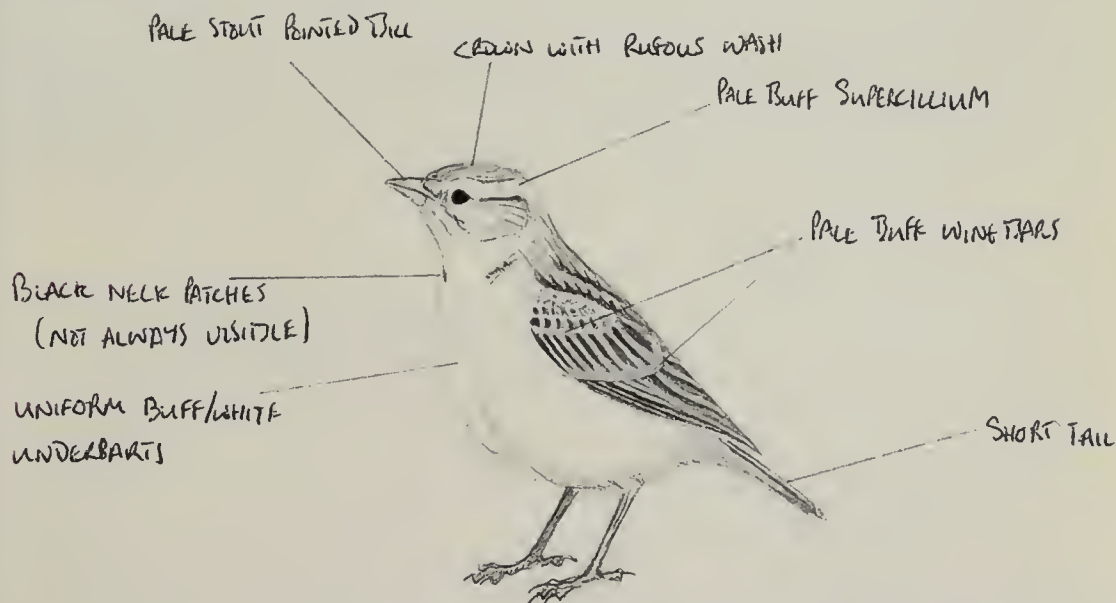 PALE STOUT POINTED BILL
CROWN WITH RUFOUS WASH
PALE BUFF SUPERCILLIUM
PALE BUFF WING BARS
BLACK NECK PATCHES
(NOT ALWAYS VISIBLE)
UNIFORM BUFF/WHITE
UNDERPARTS
SHORT TAIL